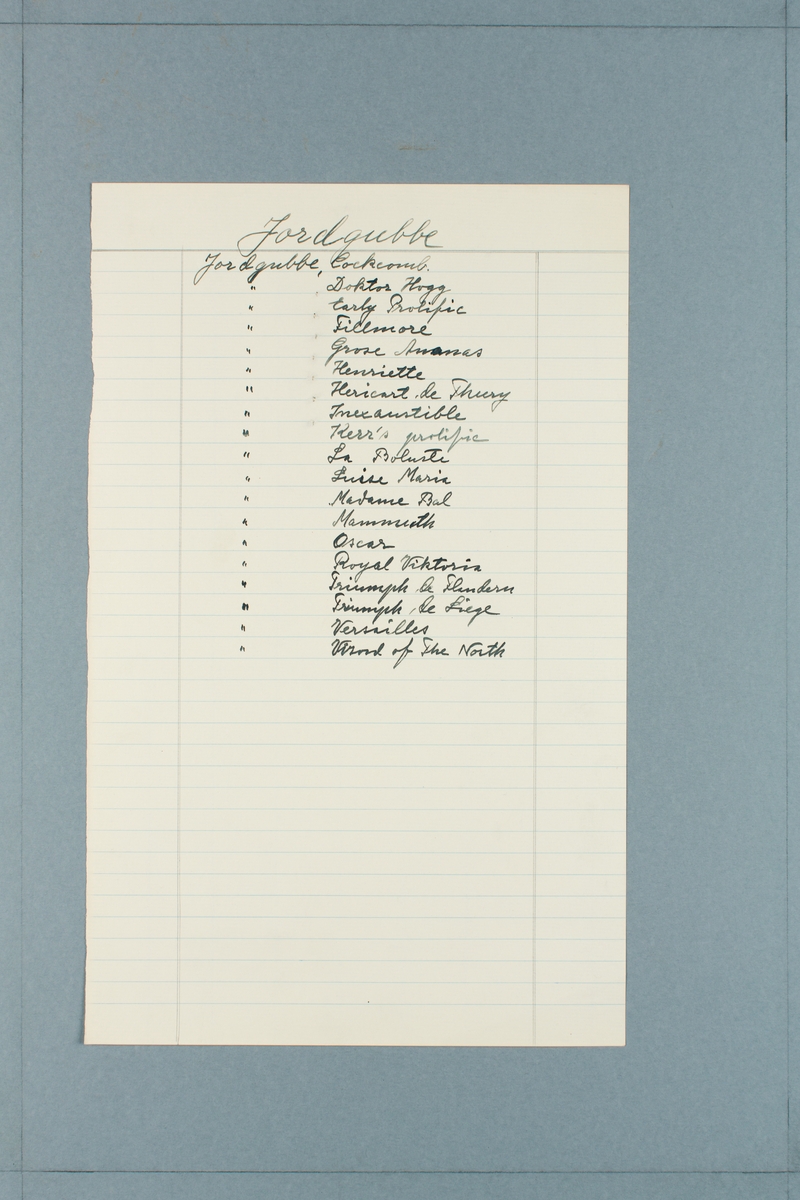 Jordgubbe
Jordgubbe, Cockcomb.
" Doktor Hogg
" Early Prolific
" Fillmore
" Grose Ananas
" Henriette
" Hericart de Thury
" Inexaustible
" Kerr's prolific
" La Boluste
" Luise Maria
" Madame Bal
" Mammuth
" Oscar
" Royal Viktoria
" Triumph de Flandern
" Triumph de Liege
" Versailles
" of The North